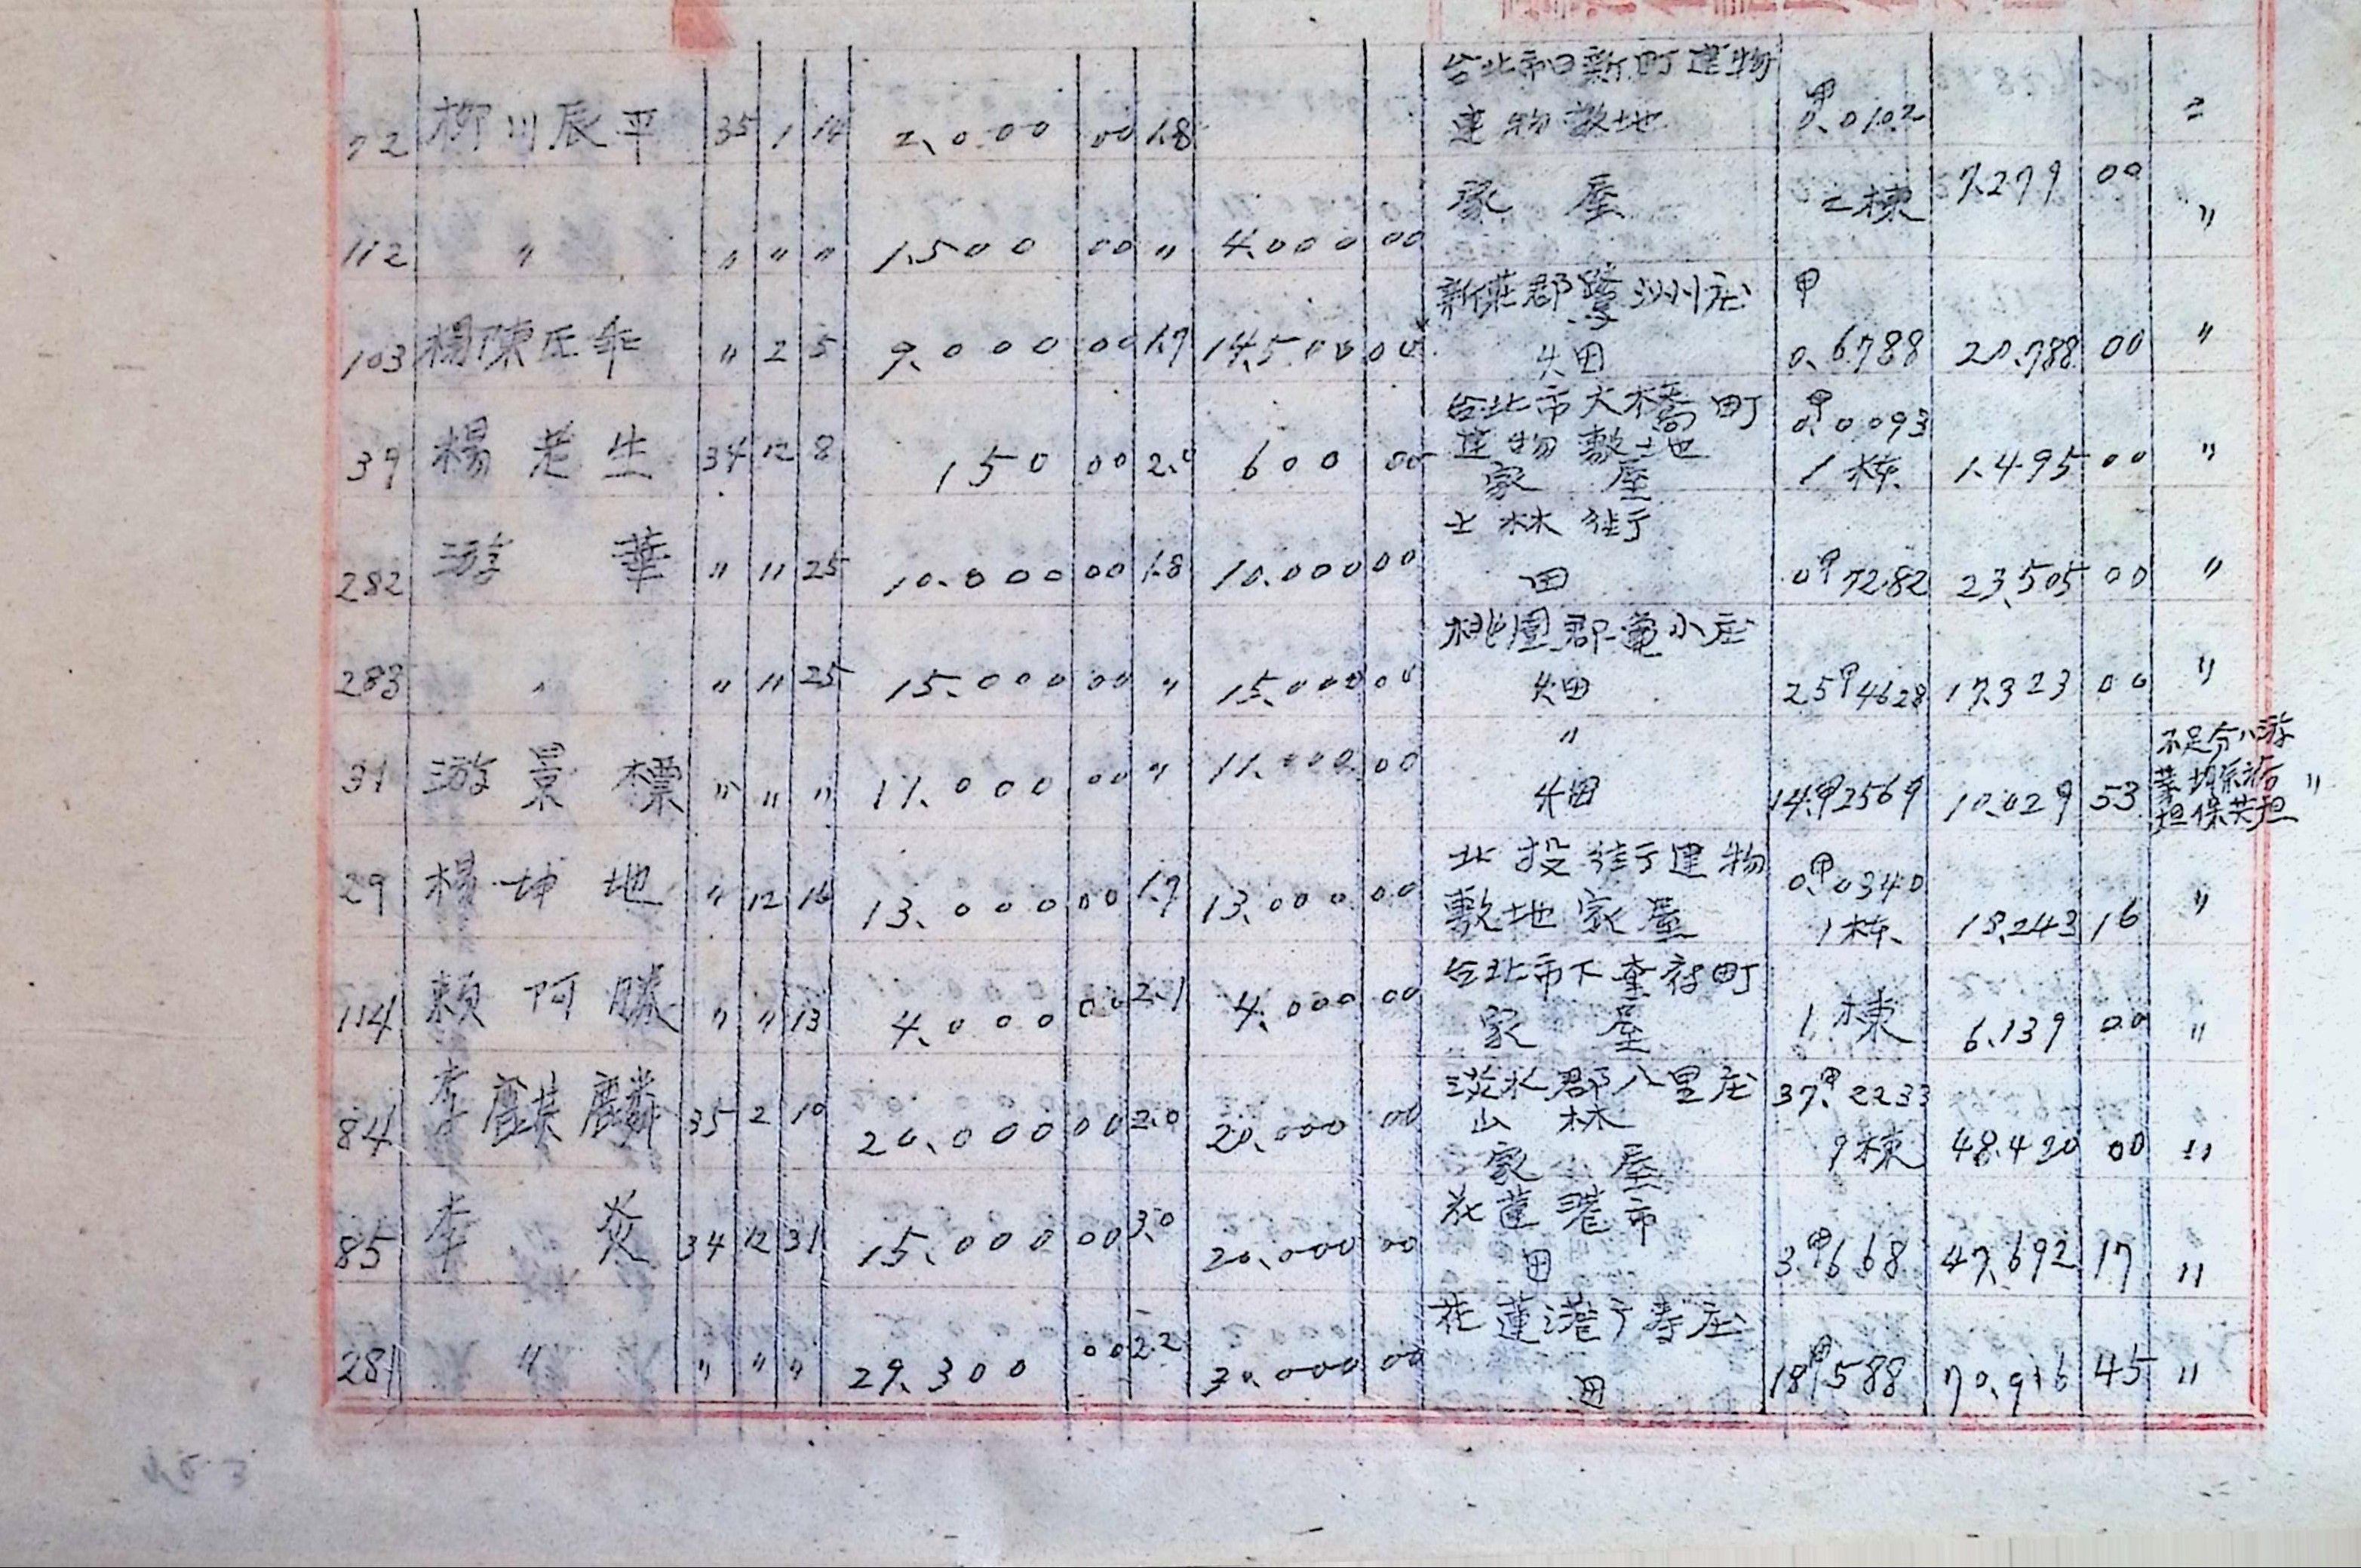 台北市日新町建物
72 柳川辰平 35 1 14 2、000 00 1.8 建物敷地 甲 0.0102 〃
家屋 2棟 7.279 00
112 〃 〃 〃 〃 1.500 00 〃 4.000 00 〃
新莊郡鷺洲庄 甲
103 楊陳氏乖 〃 2 5 9、000 00 1.7 14.500 00 畑 0.6788 20.788 00 〃
台北市大橋町 甲 0.0093
建物敷地
39 楊老生 34 12 8 150 00 2.0 600 00 家屋 1棟 1.495 00 〃
士林街
282 游華 〃 11 25 10.000 00 1.8 10.000 00 田 0甲7282 23.505 00 〃
桃園郡亀小庄
283 〃 〃 11 25 15.000 00 〃 15.000 00 畑 25甲4628 17.323 00 〃
〃 不足分八游
31 游景標 〃 〃 〃 11.000 00 〃 11.000 00 畑 14甲2569 10.029 53 〃
担保共担
北投街建物 0甲0340
29 楊坤地 〃 12 16 13.000 00 1.7 13.000 00 敷地家屋 1棟 18.243 16 〃
台北市下奎府町
114 賴阿勝 〃 〃 13 4、000 00 2.1 4.000 00 家屋 1棟 6.139 00 〃
淡水郡八里庄 37甲2233
山林
84 李麒麟 35 2 10 20.000 00 2.0 20.000 00 家屋 9棟 48.420 00 〃
花蓮港市
85 李炎 34 12 31 15.000 00 3.0 20.000 00 田 3甲668 47.692 17 〃
花蓮港庁寿庄
281 〃 〃 〃 〃 29.300 00 2.2 30.000 00 田 18甲588 70.916 45 〃